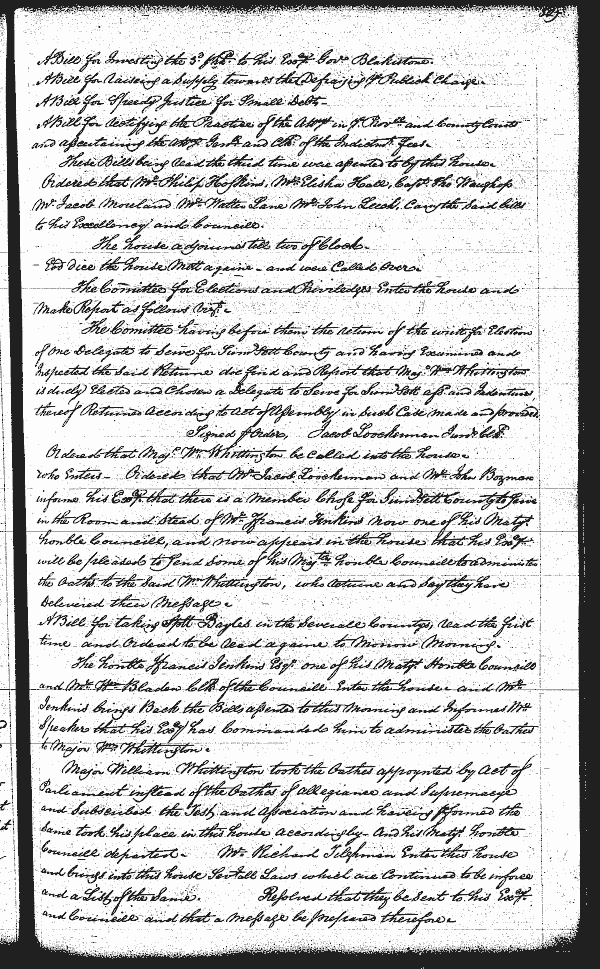 A Bill for Investing the 3d p hhd to his Excy Govr Blakistone.
A Bill for raiseing a Supply towards the Defraying ye Publick Charge.
A Bill for Speedy Justice for Small Debts
A Bill for rectifying the Practice of the Attorys in ye Provll and County Courts
and ascertaining the Attorys and Clks of the Indictmts fees.
These Bills being read the third time were assented to by this house.
Ordered that Mr Philip Hoskins, Mr Elisha Hall, Capt. Tho Waughop
Mr Jacob Moreland Mr Walter Lane Mr John Leech, Carry the Said bills
to his Excellency and Councill.
The house adjournes till two of Clock.
Eod die the house Mett againe and were Called over.
The Comittee for Elections and Priviledges Enter the house and
make Report as follows vizt.
The Comittee having before them the returne of the writt for Election
of one Delegate to Serve for Sum'sett County and having Examined and
Inspected the Said Returne doe find and Report that Majr Wm Whittington
is duely Elected and Chosen a Delegate to Serve for Sum'sett afd and Indentures
thereof Returned According to Act of Assembly in Such Case made and provided.
Signed p Order, Jacob Loockerman Junr Clk.
Ordered that Majr Wm Whittington be called into the house.
who Enters. Ordered that Mr Jacob Loockerman and Mr John Bozman
informe his Excy that there is a Member Chose for Sum'sett County to Serve
in the Room and Stead of Mr Ffrancis Jenkins now one of his Matys
honble Councill, and now appears in the house that his Excy
will be pleased to Send Some of his Matys honble Councill to administer
the Oaths to the Said Wm Whittington, who returne and Say they have
Delivered their Message.
A Bill for taking Bayles in the Severall Countys, read the first
time and Ordered to be read againe to Morrow Morning.
The honble Ffrancis Jenkins Esqr one of his Matys Honble Councill
and Mr Wm Bladen Clk of the Councill Enter the house and Mr
Jenkins brings Back the Bills assented to this Morning and Informes Mr
Speaker that his Excy has Commanded him to administer the Oathes
to Major Wm Whittington.
Major William Whittington took the Oathes appoynted by Act of
Parliament instead of the Oathes of Allegiance and Supremacye
and Subscribed the Test and Association and having p'formed the
Same took his place in this house accordingly. And his Matys honble
Councill departed. Mr Richard Tilghman Enter this house
and brings into this house Severall Laws which are Continued to be inforce
and a List of the Same. Resolved that they be Sent to his Excy
and Councill and that a Message be prepared therefore.